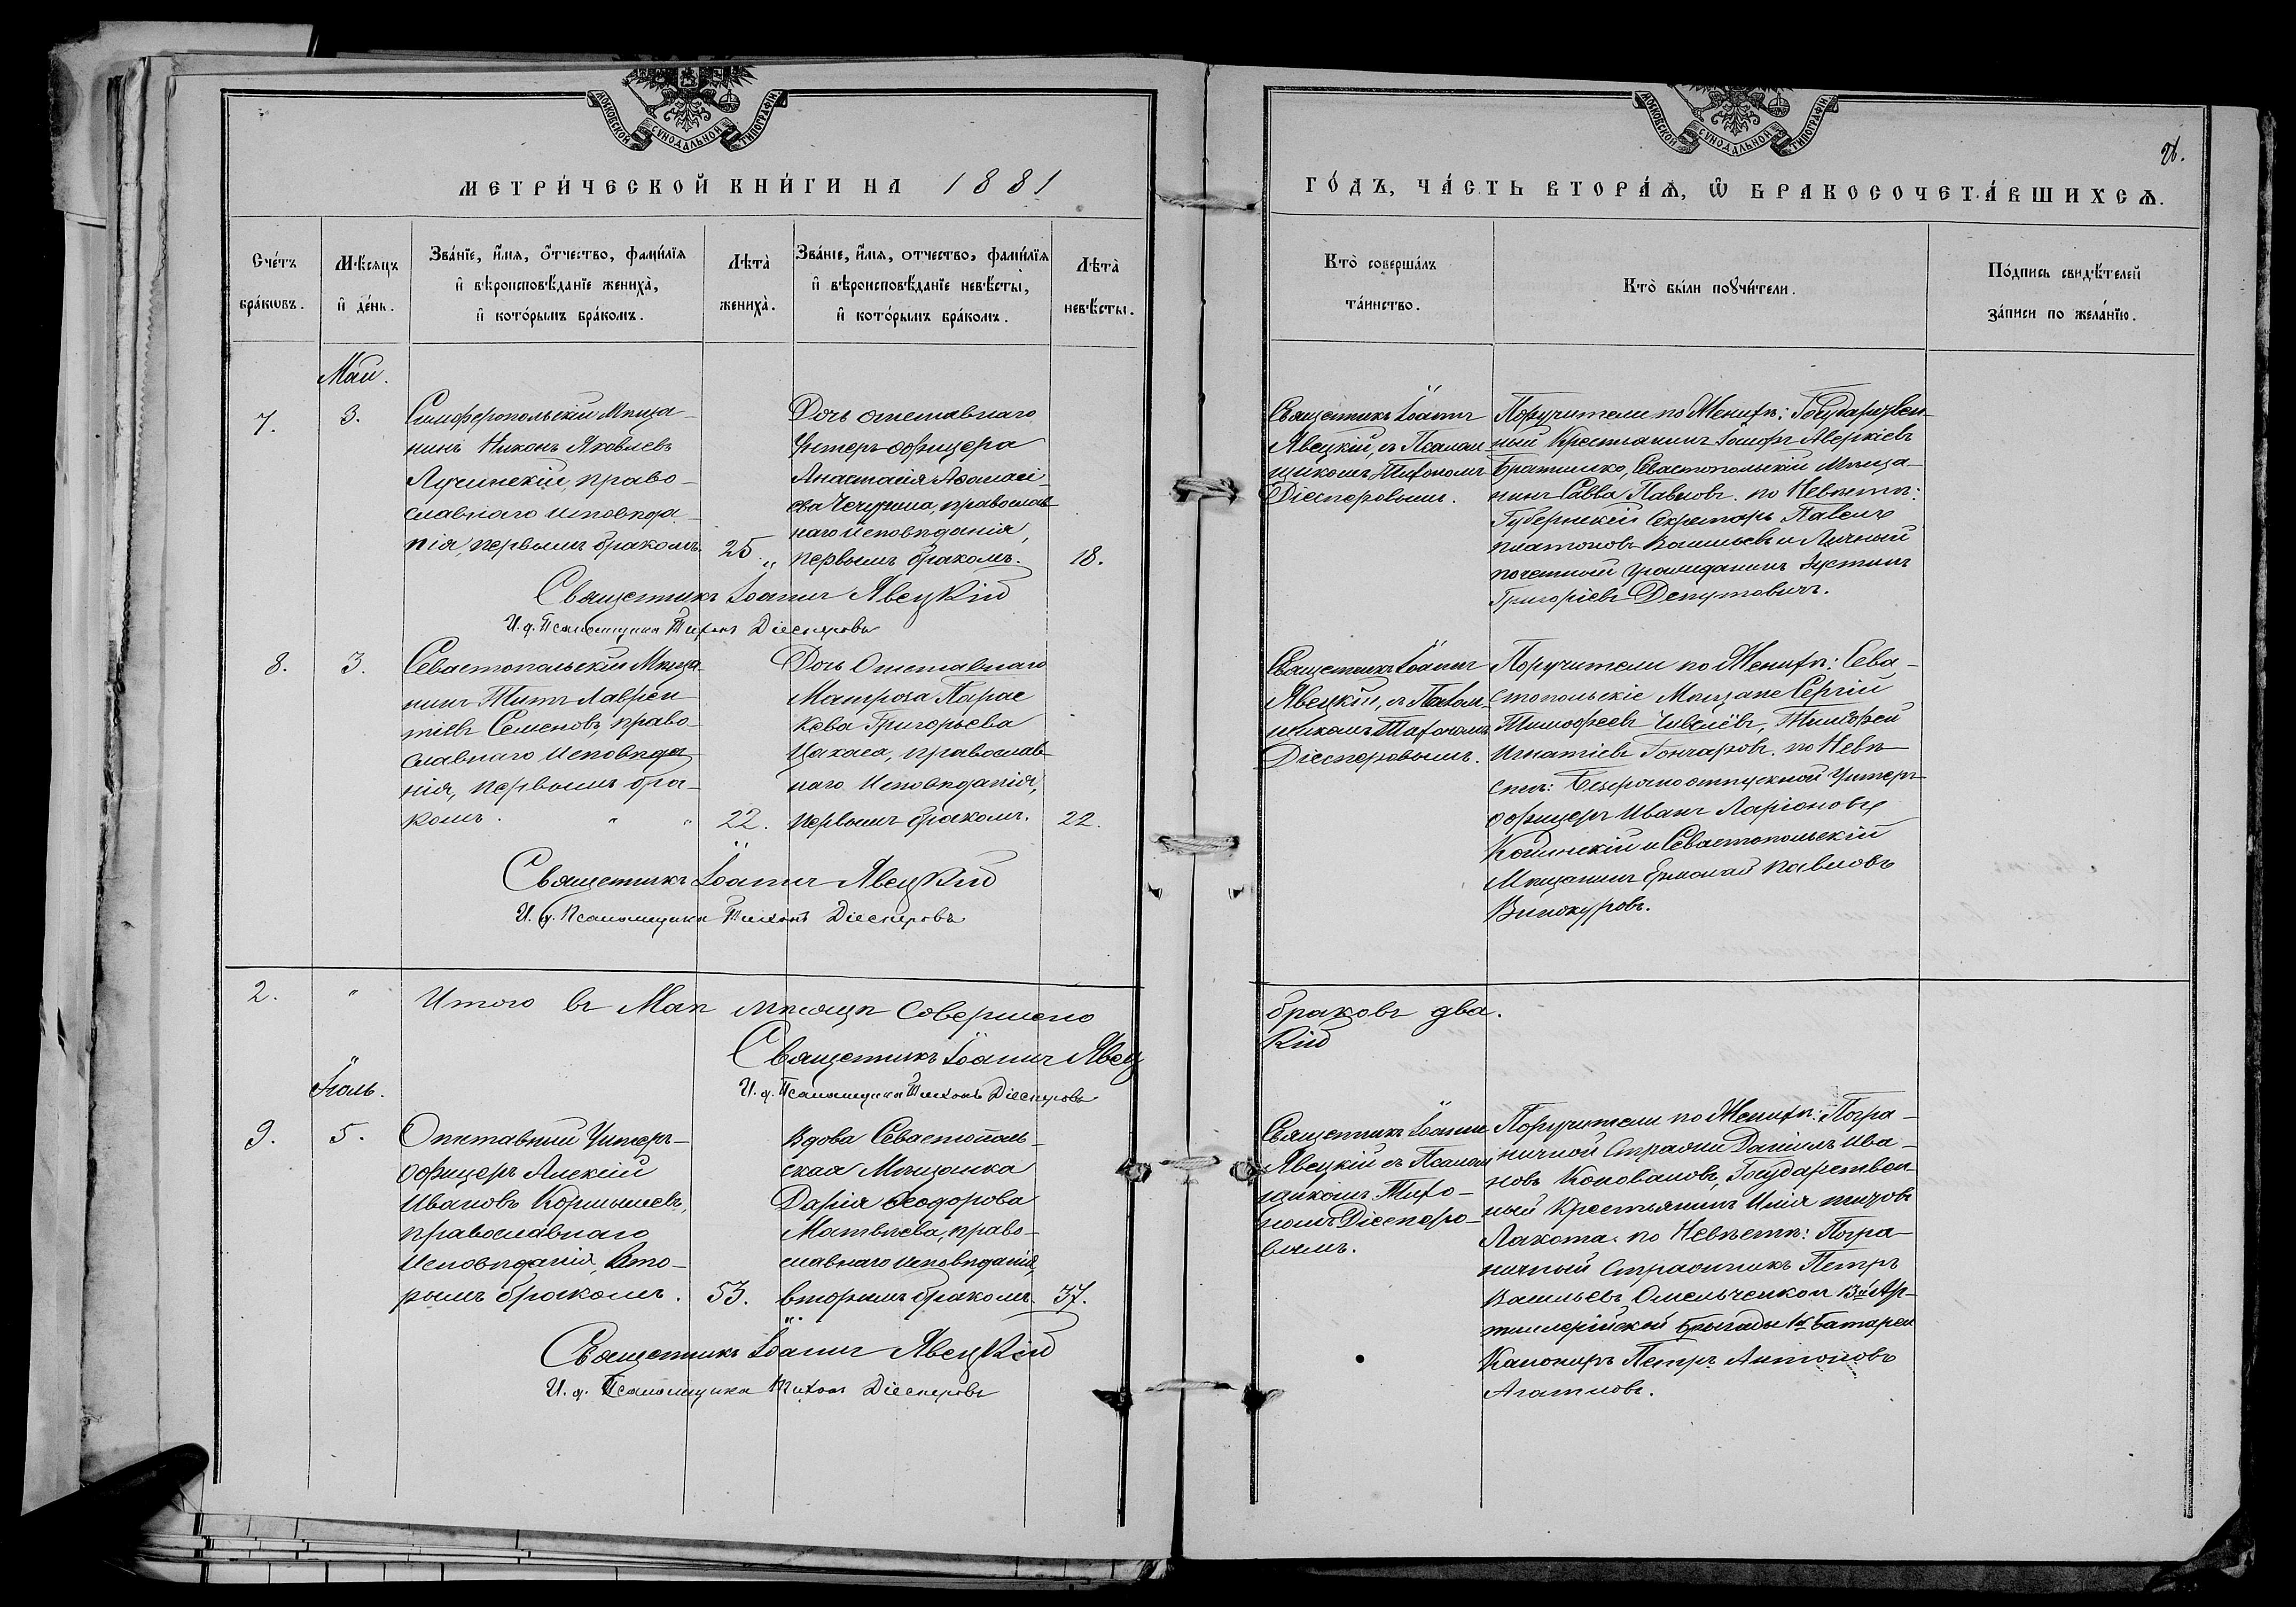 МОСКОВСКОЙ СѴНОДАЛЬНОЙ ТИПОГРАФІИ.
МЕТРИ́ЧЕСКОЙ КНИ́ГИ НА 1881
Сче́тъ бра́кѡвъ.
Мѣ́сяцъ и҆ де́нь.
Зва́нїе, и҆́мя, о҆́тчество, фами́лїя
и҆ вѣроисповѣ́данїе жениха̀,
и҆ кото́рымъ бра́комъ.
Лѣта̀ жениха̀.
Зва́нїе, и҆́мя, отчество, фами́лїя
и҆ вѣроисповѣ́данїе невѣ́сты,
и҆ кото́рымъ бра́комъ.
Лѣта̀ невѣ́сты.
Май.
7. 3.
Симферопольскій Мѣща-
нинъ Никонъ Яковлевъ
Лучинскій, право-
славнаго исповѣда-
нія, первымъ бракомъ. 25.
Дочь отставнаго
Унтеръ-офицера
Анастасія Аѳанасі-
ева, православ-
наго исповѣданія,
первымъ бракомъ. 18.
Священникъ Іоаннъ Явецкій
И. д. Псаломщика Тихонъ Діесперовъ
8. 3.
Севастопольскій Мѣща-
нинъ Титъ Лаврен-
тіевъ Семеновъ, право-
славнаго исповѣда-
нія, первымъ бра-
комъ. " " 22.
Дочь Отставнаго
Матроза Парас
кева Григорьева
Цакаса, православ-
наго исповѣданія,
первымъ бракомъ. 22.
Священникъ Іоаннъ Явецкій
И. д. Псаломщика Тихонъ Діесперовъ
2. " Итого въ Маѣ мѣсяцѣ совершено
Священникъ Іоаннъ Явец
И. д. Псаломщика Тихонъ Діесперовъ
Іюль.
9. 5.
Отставный Унтеръ-
офицеръ Алексій
Ивановъ Кормышевъ,
православнаго
исповѣданія, вто-
рымъ бракомъ. 53.
Вдова Севастополь-
ская Мѣщанка
Дарія Ѳеодорова
Матвѣева, право-
славнаго исповѣданія,
вторымъ бракомъ. 37.
Священникъ Іоаннъ Явецкій
И. д. Псаломщика Тихонъ Діесперовъ
МОСКОВСКОЙ СѴНОДАЛЬНОЙ ТИПОГРАФІИ.
26.
ГО́ДЪ, ЧА́СТЬ ВТОРА́Ѧ, Ѽ БРАКОСОЧЕТА́ВШИХСѦ.
Кто̀ соверша́лъ
та́инство.
Кто̀ бы́ли порꙋчи́тели.
По́дпись свидѣ́телей
за́писи по жела́нїю.
Священникъ Іоаннъ
Явецкій, съ Псалом-
щикомъ Тихономъ
Діесперовымъ.
Поручители по Женихѣ: Государствен-
ный Крестьянинъ Іосифъ Аверкіевъ
Братишко, Севастопольскій Мѣща-
нинъ Савва Павловъ. по Невѣстѣ:
Губернскій Секретарь Павелъ
Платоновъ Васильевъ и Личный
почетный гражданинъ Іустинъ
Григоріевъ Депутовичъ.
Священникъ Іоаннъ
Явецкій, съ Псалом-
щикомъ Тихономъ
Діесперовымъ.
Поручители по Женихѣ: Сева-
стопольскіе Мѣщане Сергій
Тимоѳеевъ, Тимоѳей
Игнатіевъ Гончаровъ. по Невѣ-
стѣ: Безсрочноотпускной Унтеръ-
офицеръ Иванъ Ларіоновъ
и Севастопольскій
Мѣщанинъ Ермолай Павловъ
Винокуровъ.
браковъ два.
кій
Священникъ Іоаннъ
Явецкій съ Псалом
щикомъ Тихо-
номъ Діесперо-
вымъ.
Поручители по Женихѣ: Погра-
ничной Стражи Даніилъ Ива-
новъ Коноваловъ, Государствен-
ный Крестьянинъ Илія
Лакота. по Невѣстѣ: Погра-
ничный стражникъ Петръ
Васильевъ Омельченко и 13й Ар-
тиллерійской бригады 1й батареи
Канониръ Петръ Антоновъ